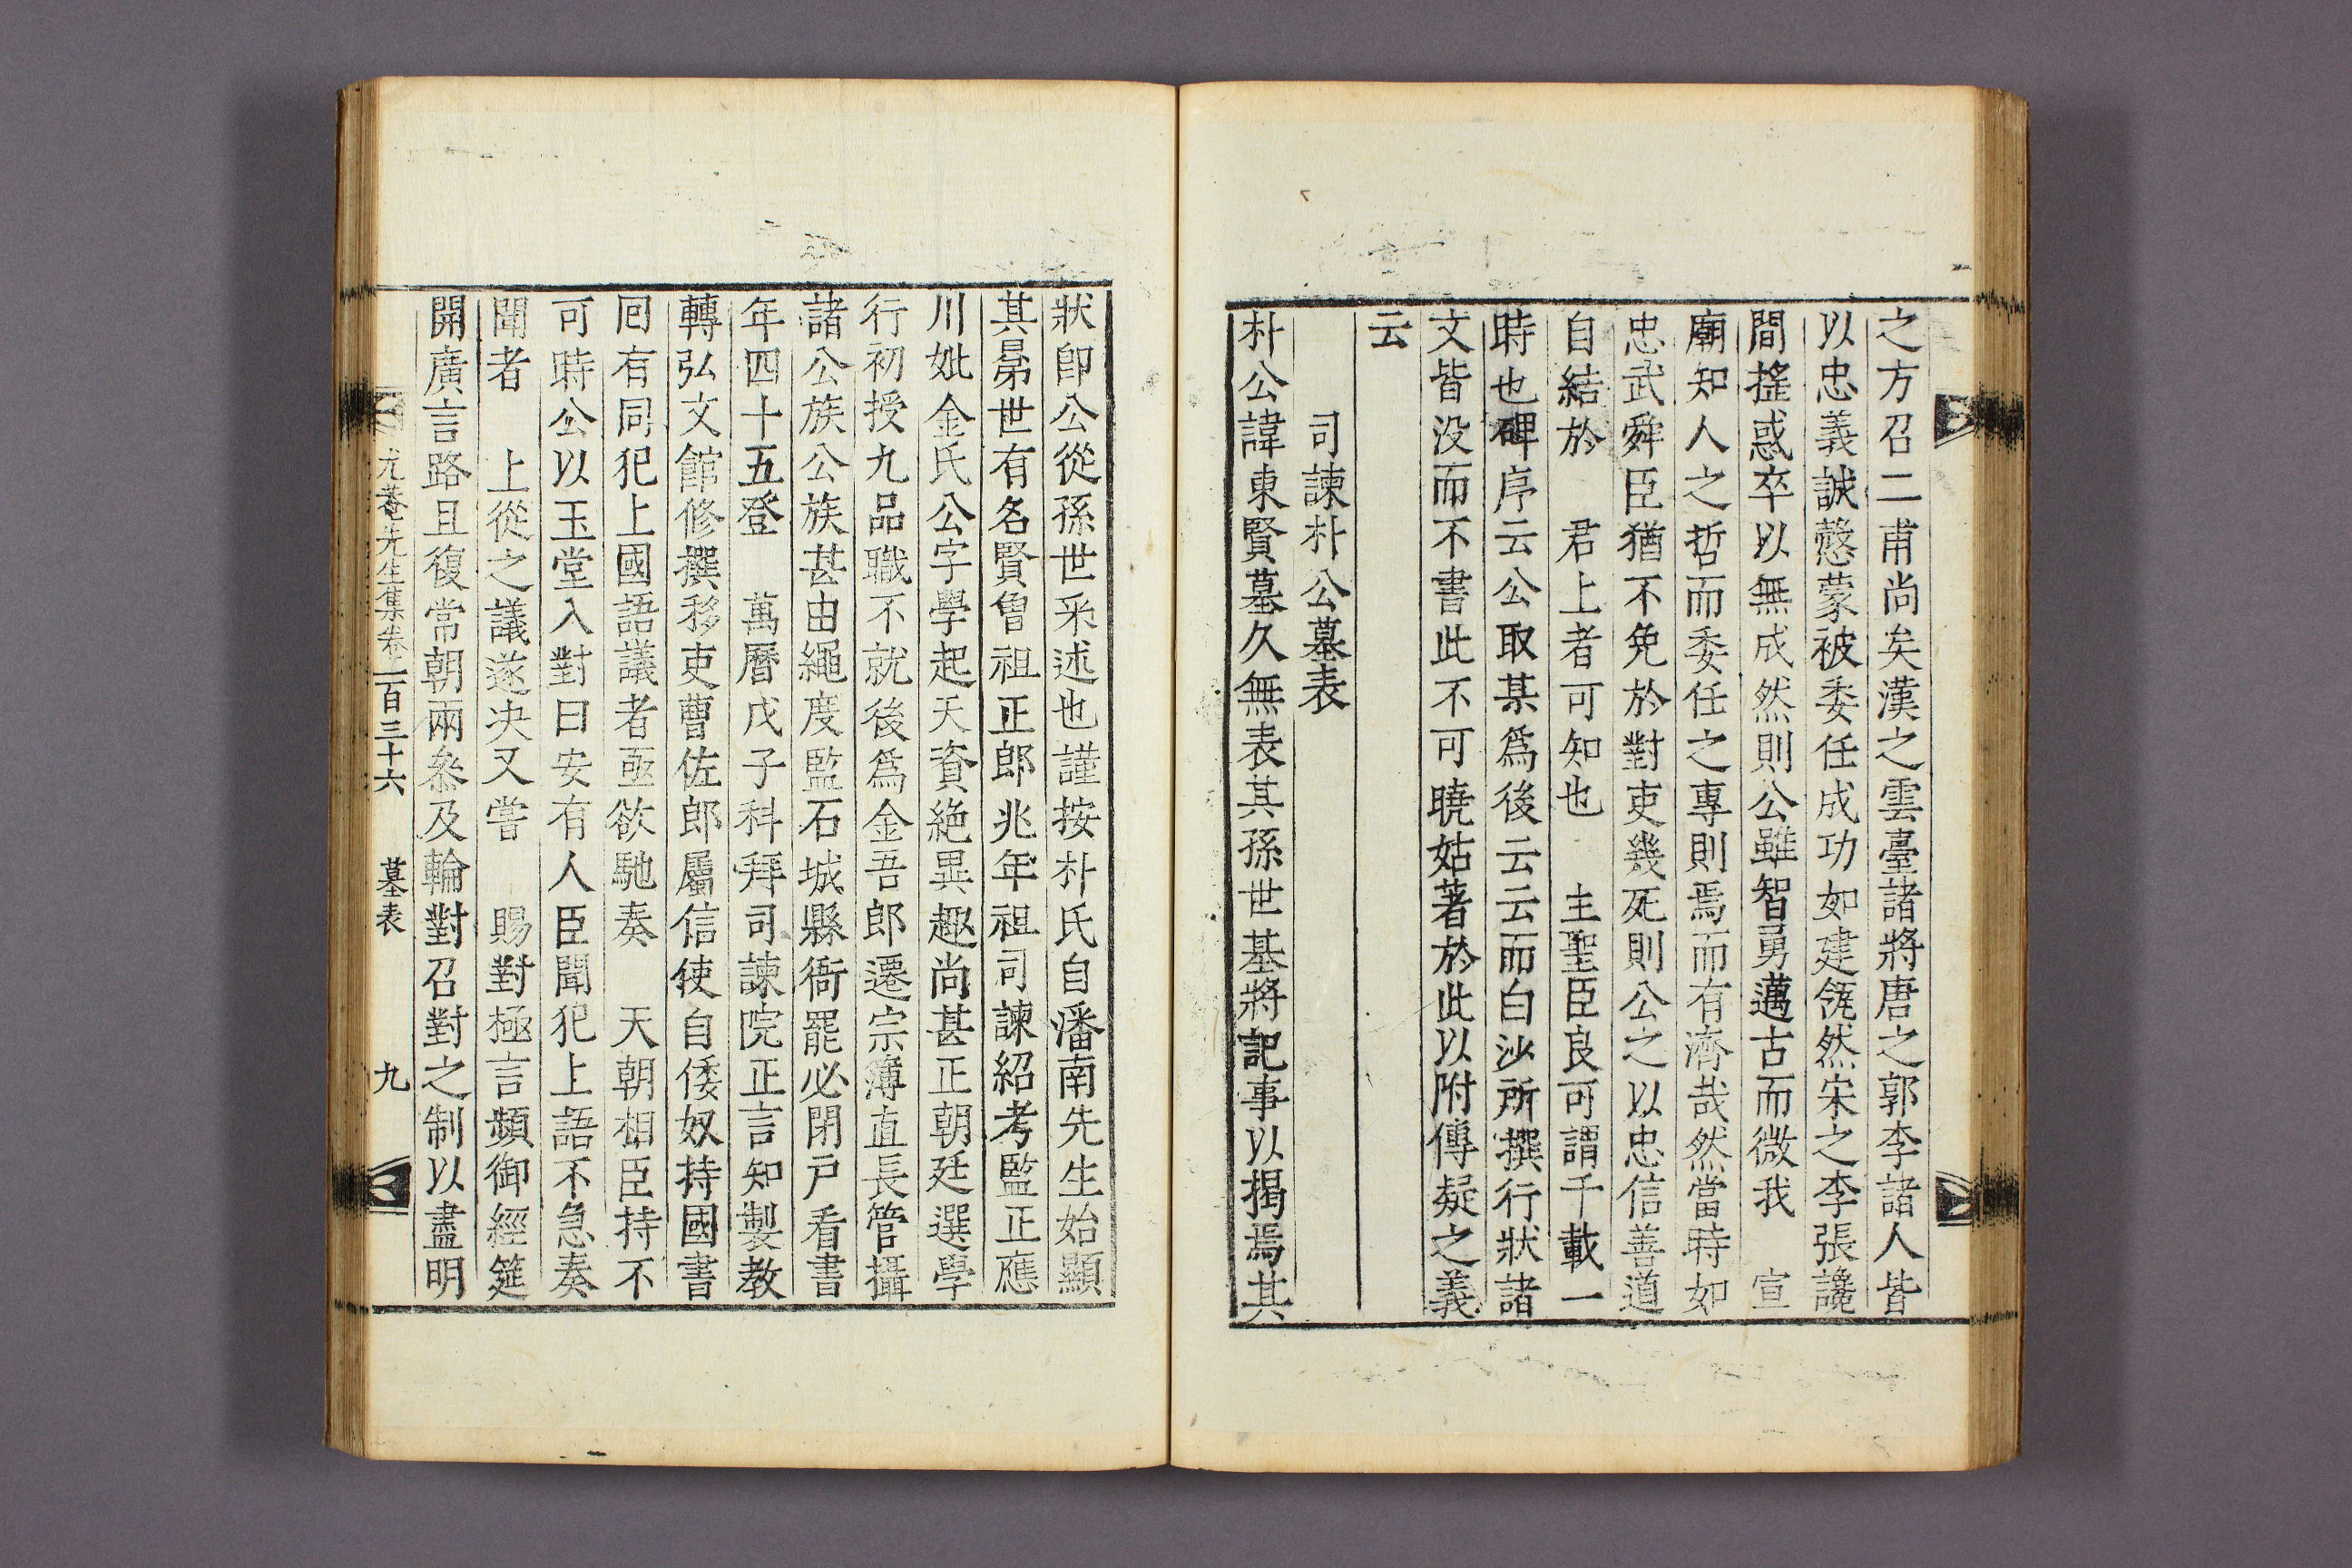 之方召二甫尚矣漢之雲臺諸將唐之郭李諸人皆
以忠義誠慤蒙被委任成功如建瓴然宋之李張讒
間搖惑卒以無成然則公雖智勇邁古而微我　宣
廟知人之哲而委任之專則焉而有濟哉然當時如
忠武舜臣猶不免於對吏幾死則公之以忠信善道
自結於　君上者可知也　主聖臣良可謂千載一
時也碑序云公取某爲後云云而白沙所撰行狀諸
文皆没而不書此不可曉姑著於此以附傳疑之義
云
司諫朴公墓表
朴公諱東賢墓久無表其孫世基將記事以揭焉其
狀卽公從孫世采述也謹按朴氏自潘南先生始顯
其曓世有名賢曾祖正郎兆年祖司諫紹考監正應
川妣金氏公字學起天資絶異趣尚甚正朝廷選學
行初授九品職不就後爲金吾郎遷宗簿直長管攝
諸公族公族甚由繩度監石城縣衙罷必閉戸看書
年四十五登　萬曆戊子科拜司諫院正言知製教
轉弘文館修撰移吏曹佐郎屬信使自倭奴持國書
回有同犯上國語議者亟欲馳奏　天朝相臣持不
可時公以玉堂入對曰安有人臣聞犯上語不急奏
聞者　上從之議遂决又嘗　賜對極言頻御經筵
開廣言路且復常朝兩叅及輪對召對之制以盡明
尤菴先生集卷一百三十六　墓表　九